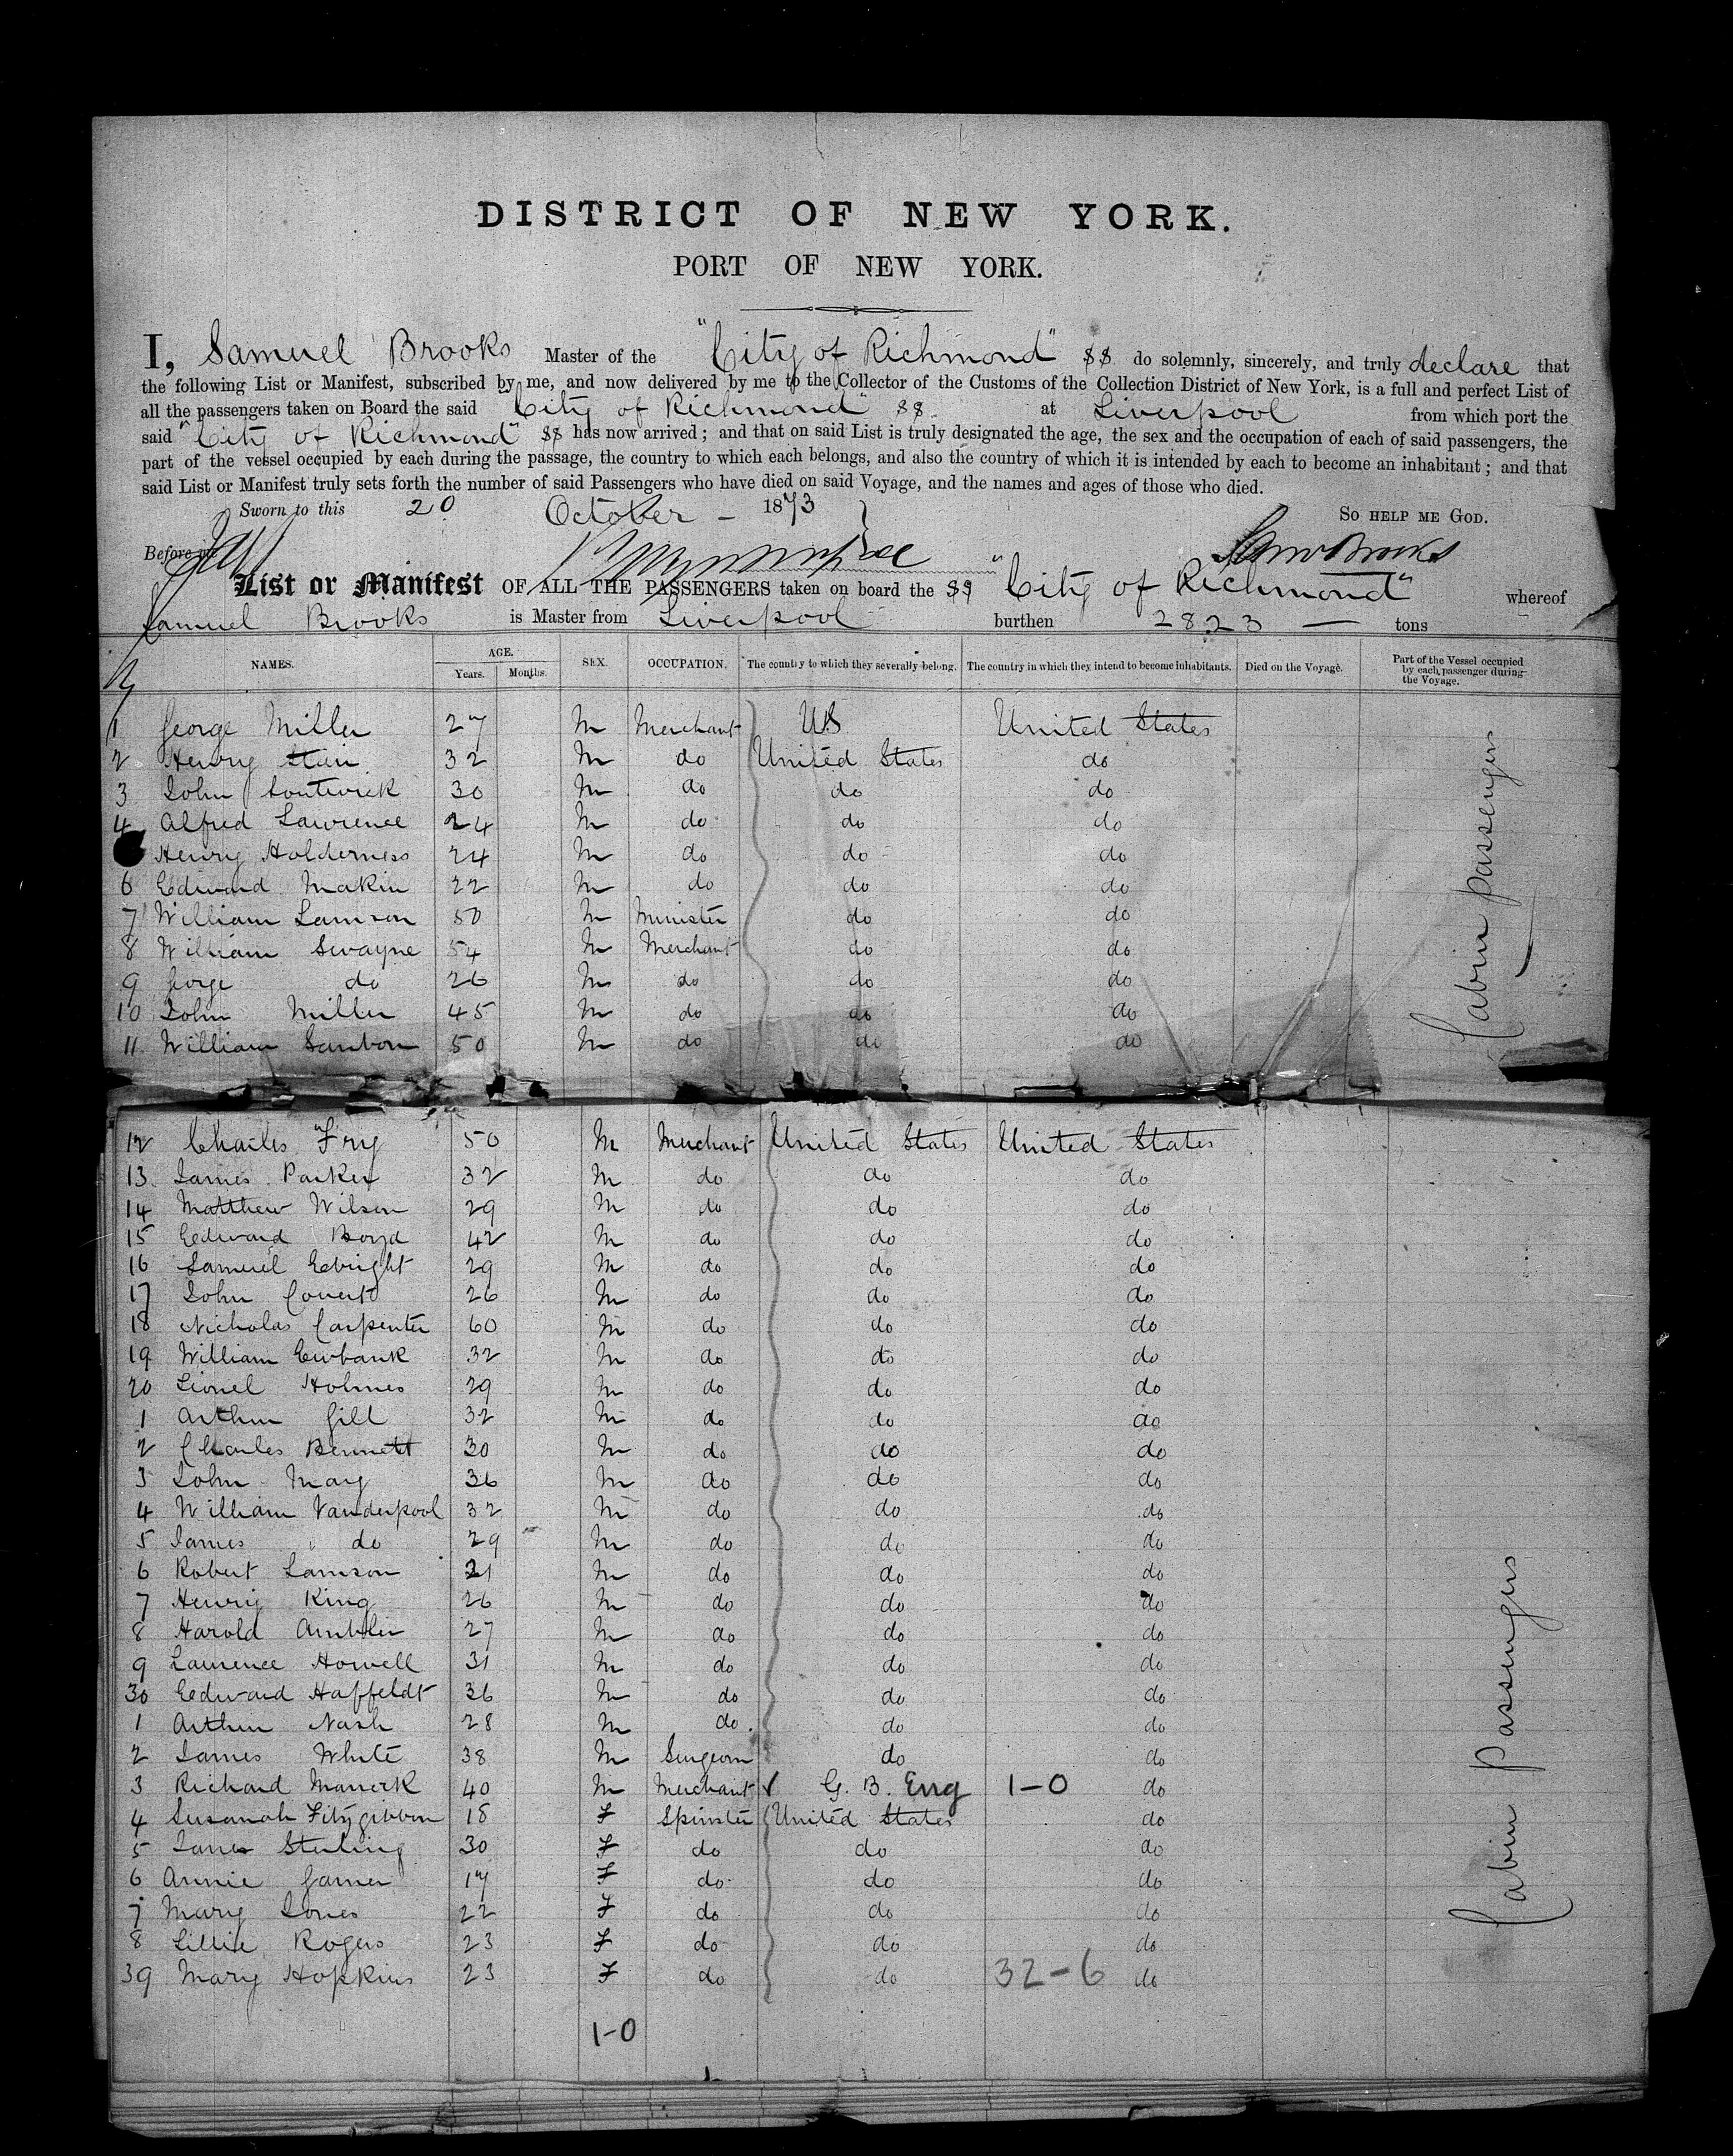 DISTRICT OF NEW YORK.
PORT OF NEW YORK.
I, Samuel Brooks Master of the "City of Richmond" SS do solemnly, sincerely, and truly declare that
the following List or Manifest, subscribed by me, and now delivered by me to the Collector of the Customs of the Collection District of New York, is a full and perfect List of
all the passengers taken on Board the said "City of Richmond" SS. at Liverpool from which port the
said "City of Richmond" SS has now arrived; and that on said List is truly designated the age, the sex and the occupation of each of said passengers, the
part of the vessel occupied by each during the passage, the country to which each belongs, and also the country of which it is intended by each to become an inhabitant; and that
said List or Manifest truly sets forth the number of said Passengers who have died on said Voyage, and the names and ages of those who died.
Sworn to this 20 October - 1873 SO HELP ME GOD.
Before me Saml Brooks
List or Manifest OF ALL THE PASSENGERS taken on board the SS "City of Richmond" whereof
Samuel Brooks is Master from Liverpool burthen 2823 — tons
NAMES. AGE. Years. Months. SEX. OCCUPATION. The country to which they severally belong. The country in which they intend to become inhabitants. Died on the Voyage. Part of the Vessel occupied by each passenger during the Voyage.
1 George Miller 27 M Merchant US United States
2 Henry Stein 32 M do United States do
3 John Soutwick 30 M do do do
4 Alfred Lawrence 24 M do do do
Henry Holderness 24 M do do do
6 Edward Makin 22 M do do do
7 William Lamson 50 M Minister do do
8 William Swayne 54 M Merchant do do
9 George do 26 M do do do
10 John Miller 45 M do do do
11 William Sanborn 50 M do do do
Cabin passengers
12 Charles Fry 50 M Merchant United States United States
13 James Parker 32 M do do do
14 Matthew Wilson 29 M do do do
15 Edward Boyd 42 M do do do
16 Samuel Ebright 29 M do do do
17 John Covert 26 M do do do
18 Nicholas Carpenter 60 M do do do
19 William Ewbank 32 M do do do
20 Lionel Holmes 29 M do do do
1 Arthur Gill 32 M do do do
2 Charles Bennett 30 M do do do
3 John May 36 M do do do
4 William Vanderpool 32 M do do do
5 James do 29 M do do do
6 Robert Lamson 21 M do do do
7 Henry King 26 M do do do
8 Harold Ambler 27 M do do do
9 Laurence Howell 31 M do do do
30 Edward Haffeldt 36 M do do do
1 Arthur Nash 28 M do. do do
2 James White 38 M Surgeon do do
3 Richard 40 M Merchant G. B. Eng 1-0 do
4 Susanah Fitzgibbon 18 F Spinster United States do
5 Jane Sterling 30 F do do do
6 Annie Garner 17 F do do do
7 Mary Jones 22 F do do do
8 Lillie Rogers 23 F do do do
39 Mary Hopkins 23 F do do 32-6 do
1-0
Cabin Passengers